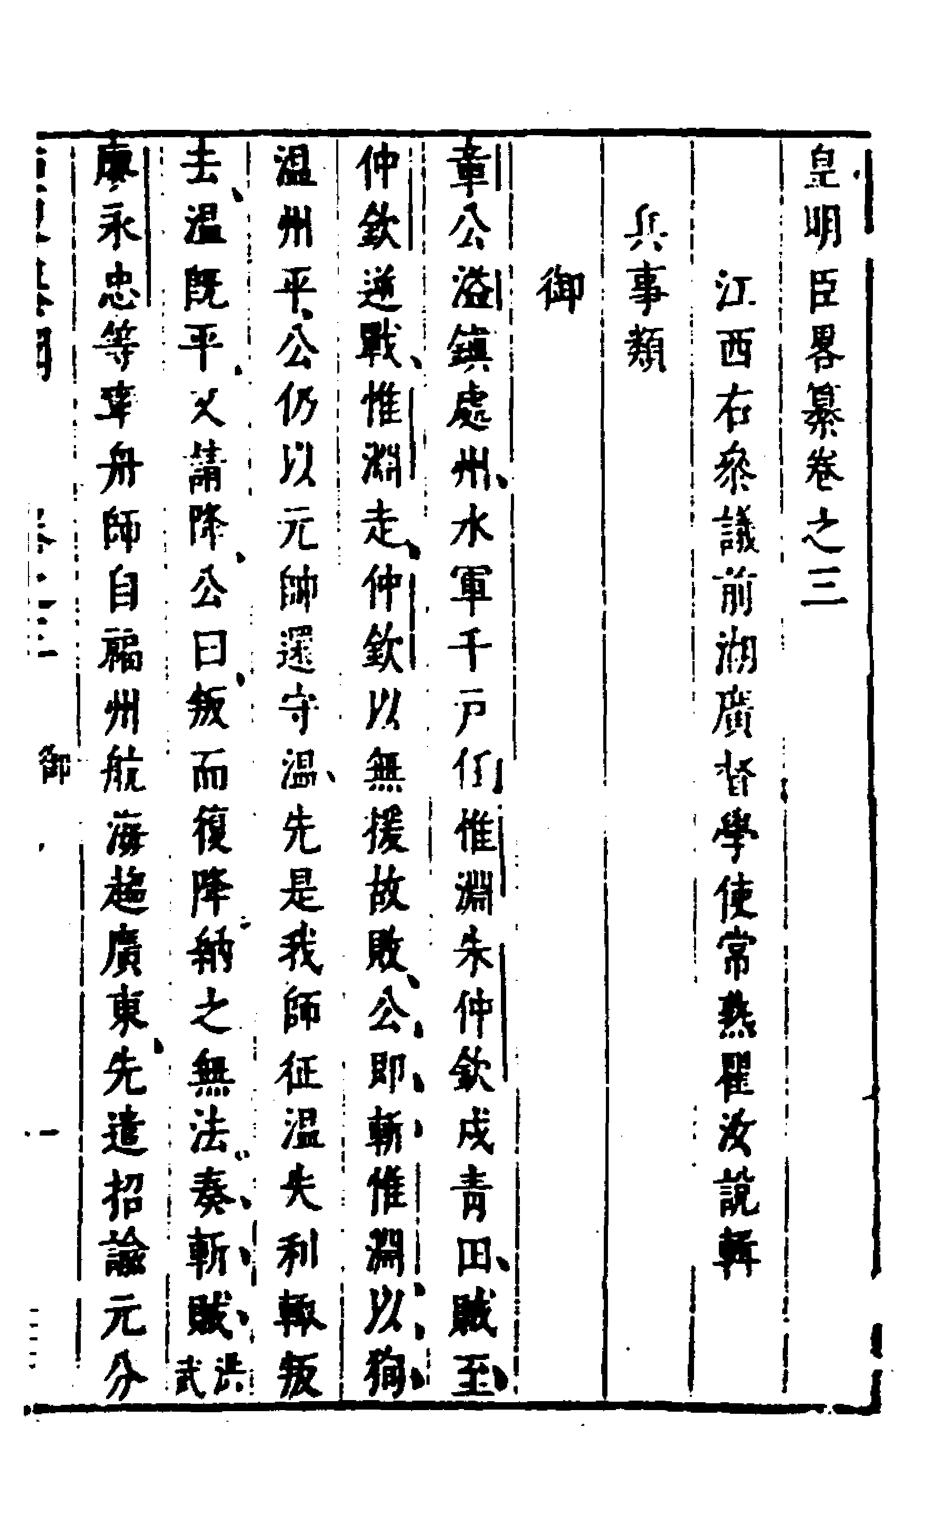 皇明臣畧纂卷之三
江西右叅議前湖廣督學使常熟瞿汝說輯
兵事類
御
章公溢鎮處州水軍千戸任惟淵朱仲欽戍青田賊至
仲欽逆戰惟淵走仲欽以無援故敗公即斬惟淵以狥
温州平公仍以元帥還守温先是我師征温失利輙叛
去温既平乂請降公曰叛而復降納之無法奏斬賊洪武
廖永忠等率舟師自福州航海趨廣東先遣招諭元分
卷之三
御
一